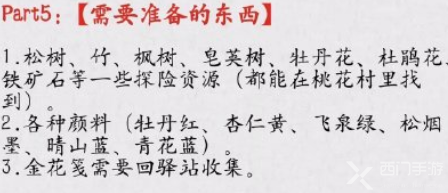 Part5:【需要准备的东西】
1.松树、竹、枫树、皂英树、牡丹花、杜鹃花、
铁矿石等一些探险资源（都能在桃花村里找
到）。
2.各种颜料（牡丹红、杏仁黄、飞泉绿、松烟
墨、晴山蓝、青花蓝）。
3.金花笺需要回驿站收集。
西门手游